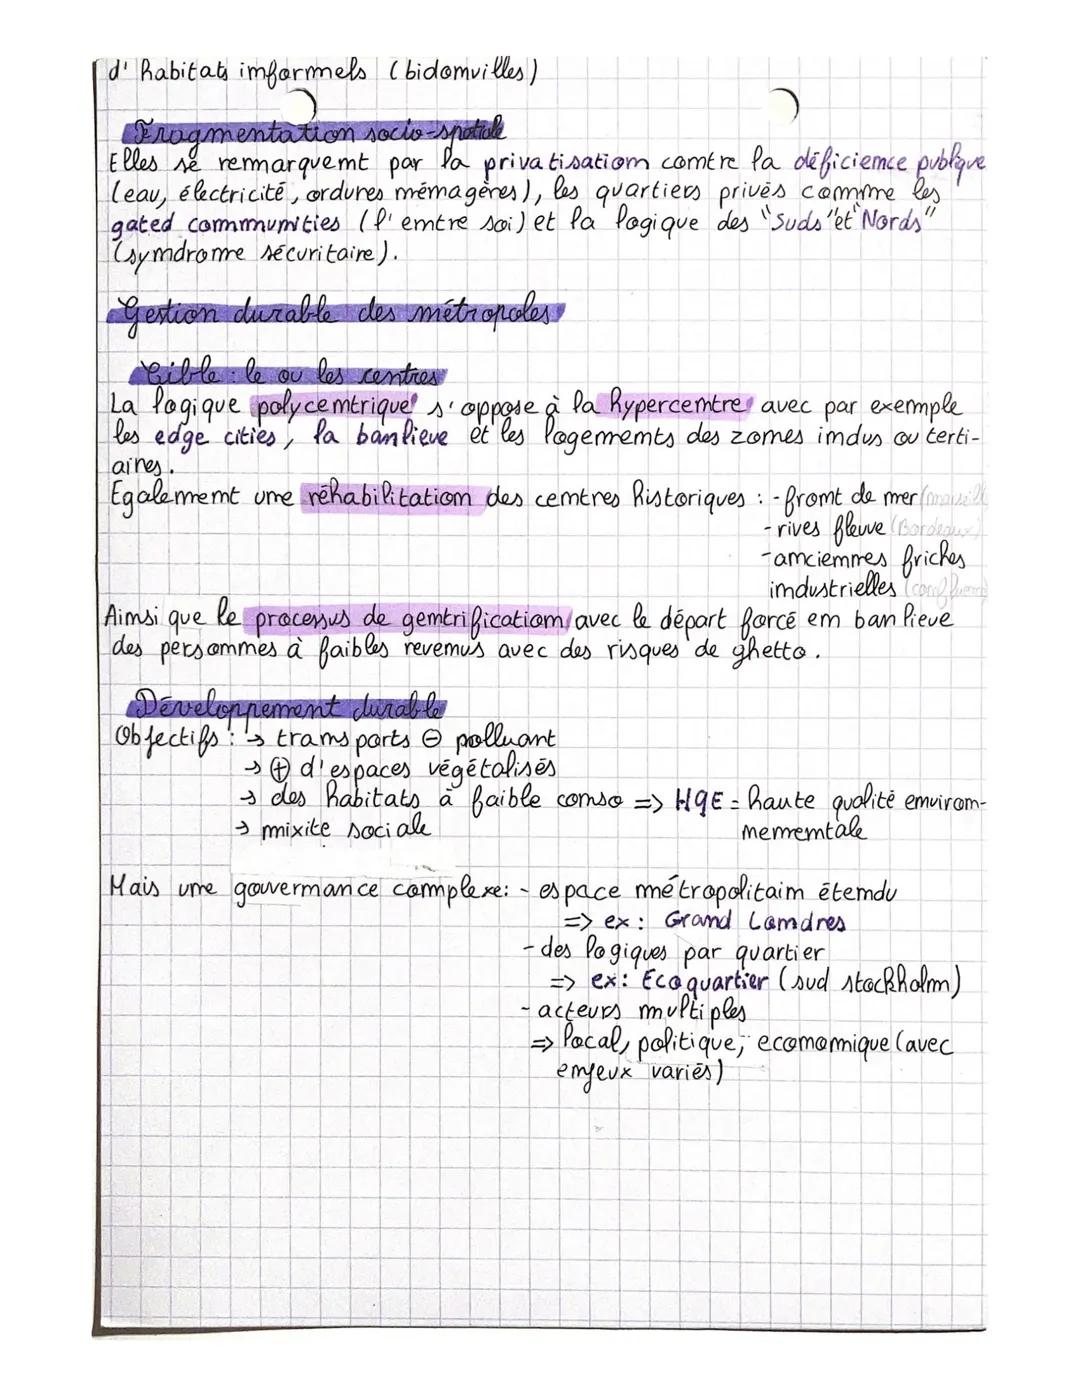 d' habitats informels (bidonvilles)
Fragmentation socio-spatiale
Elles se remarquent par la privatisation contre la déficience publique
(eau, électricité, ordures ménagères), les quartiers privés comme les
gated communities (l'entre soi) et la logique des "Suds" et "Nords"
(syndrome sécuritaire).
Gestion durable des métropoles
Cible : le ou les centres
La logique polycentrique s'oppose à la hypercentre avec par exemple
les edge cities, la banlieue et les logements des zones indus ou terti-
aires.
Egalement une réhabilitation des centres historiques : - front de mer
- rives fleuve (Bordeaux)
- anciennes friches
industrielles
Ainsi que le processus de gentrification avec le départ forcé en banlieue
des personnes à faibles revenus avec des risques de ghetto.
Développement durable
Objectifs : → transports ⊖ polluant
→ ⊕ d'espaces végétalisés
→ des habitats à faible conso => HQE = haute qualité environ-
nementale
→ mixite sociale
Mais une gouvernance complexe : - espace métropolitain étendu
=> ex : Grand Londres
- des logiques par quartier
=> ex : Ecoquartier (sud stockholm)
- acteurs multiples
=> local, politique, economique (avec
enjeux variés)